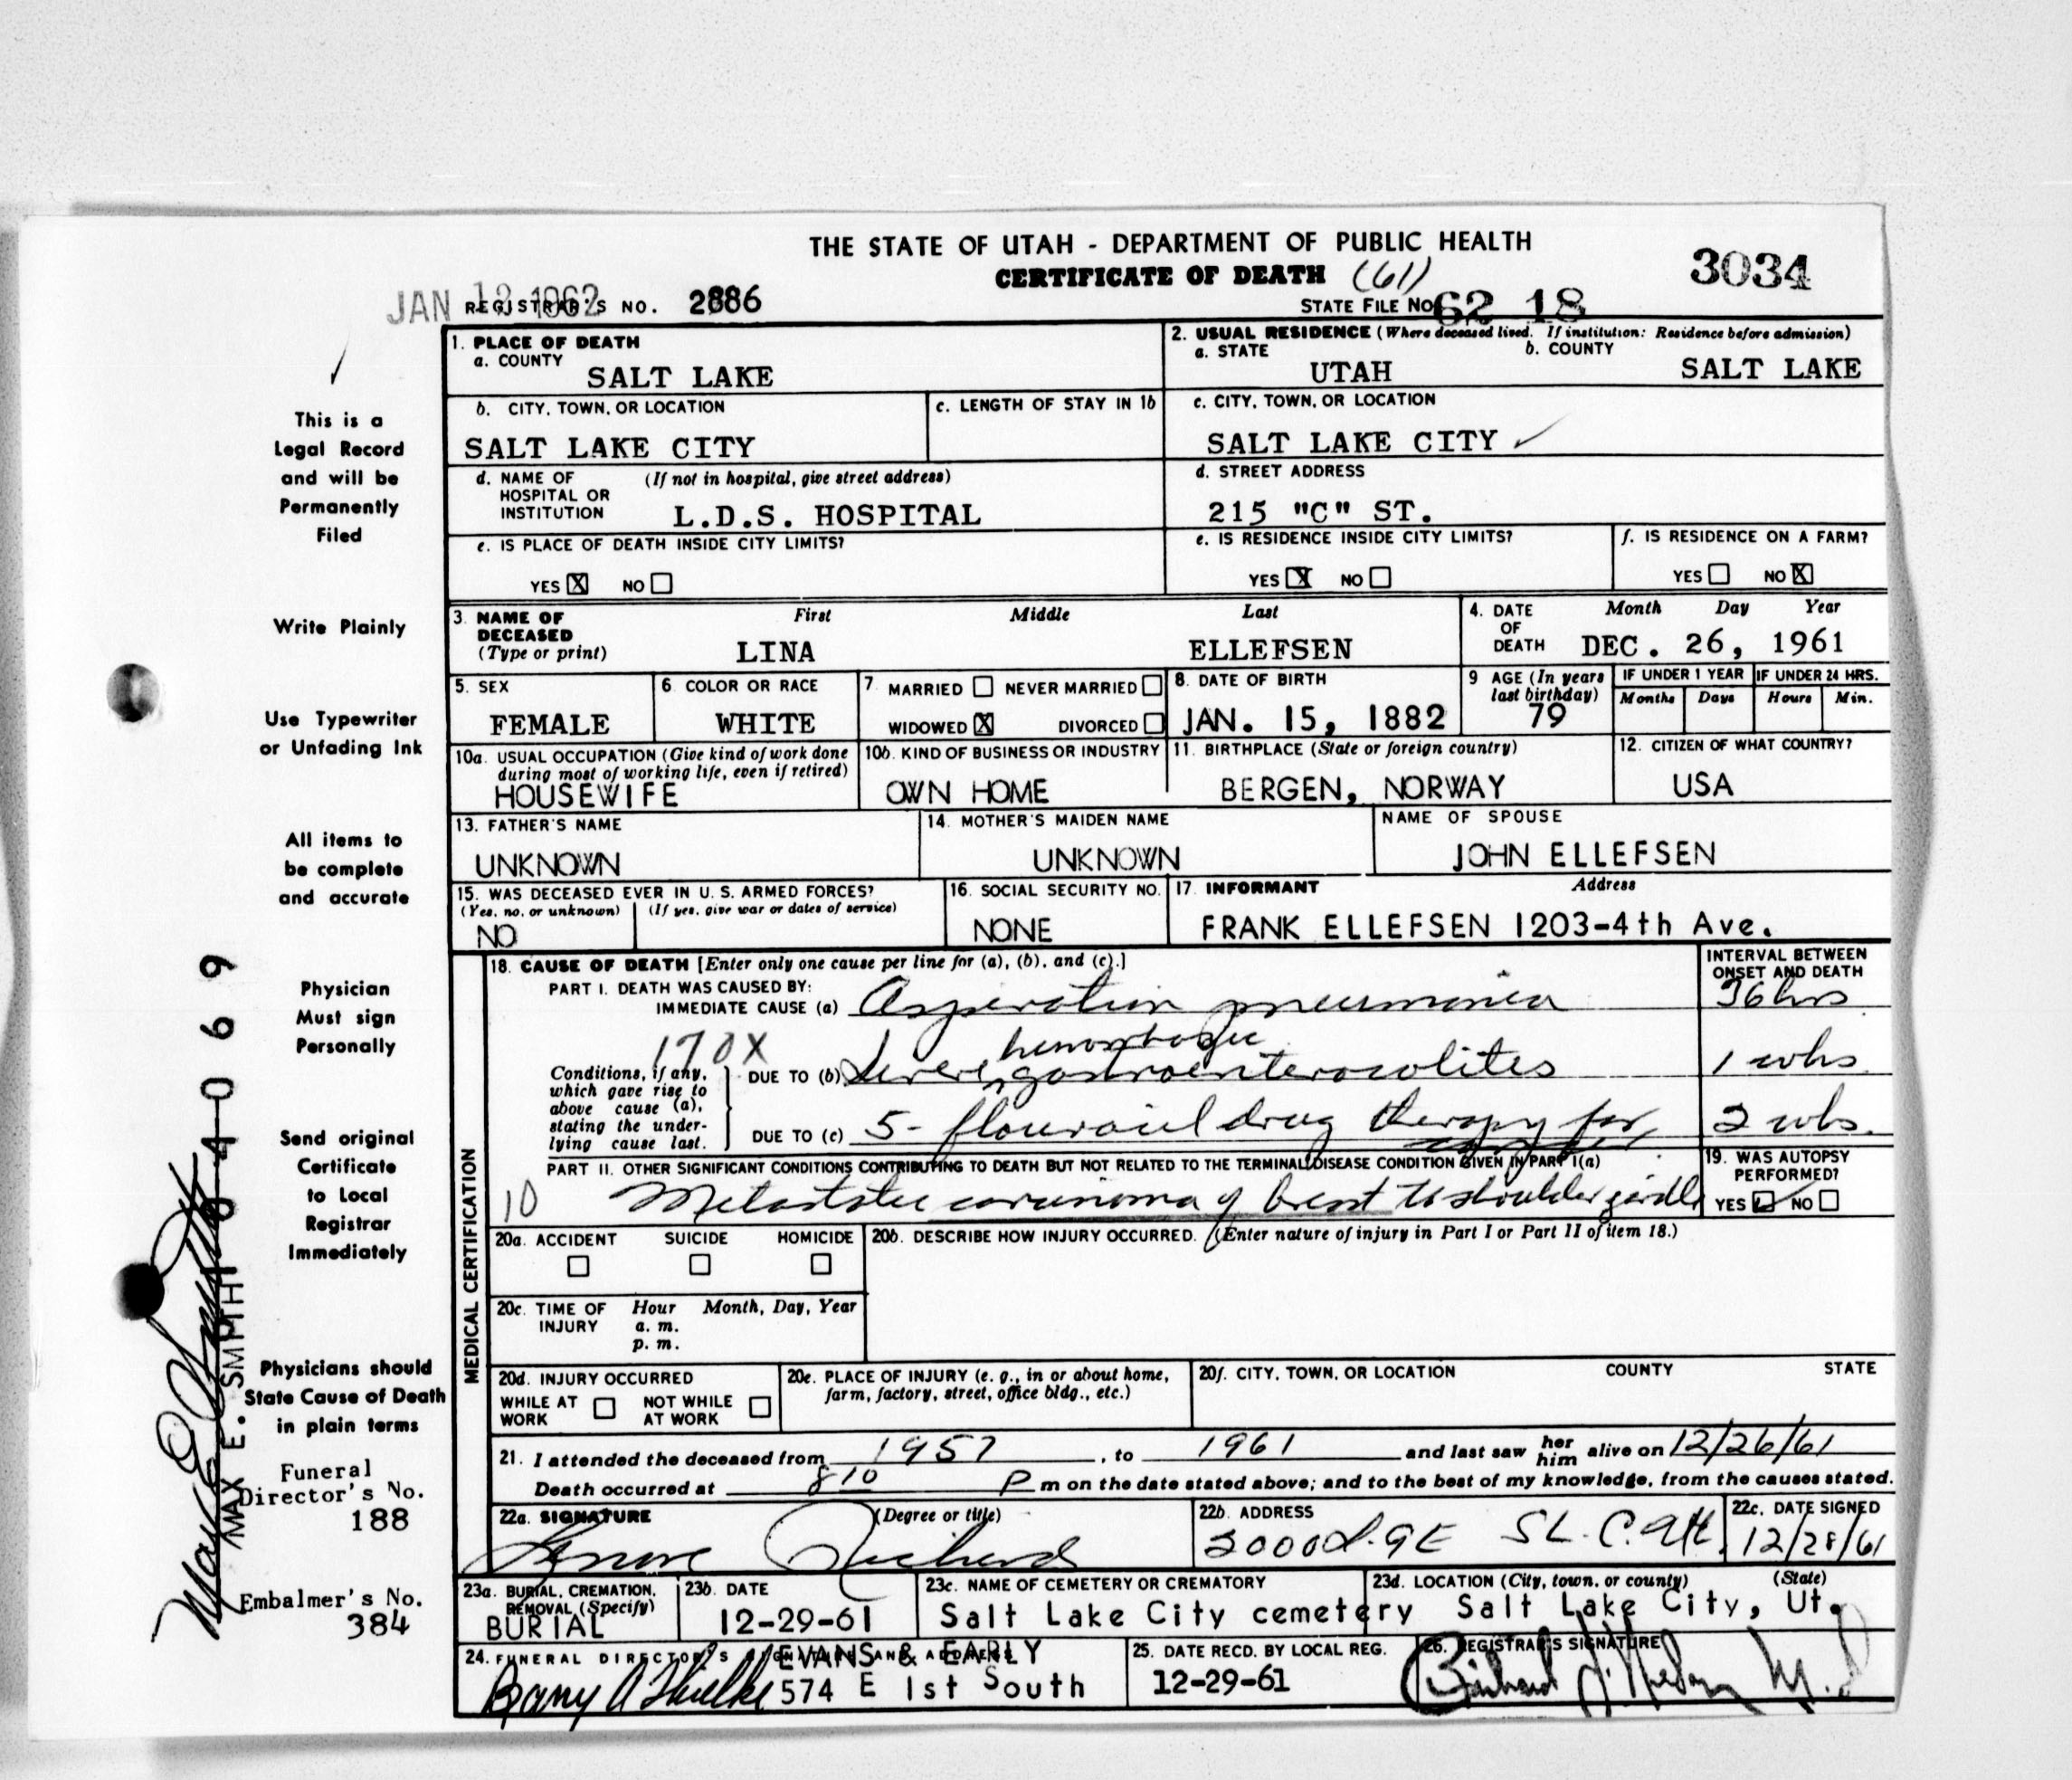 THE STATE OF UTAH - DEPARTMENT OF PUBLIC HEALTH
CERTIFICATE OF DEATH (61)
3034
JAN 12 1962
REGISTRAR'S NO. 2886
STATE FILE NO. 62 18
1. PLACE OF DEATH
a. COUNTY
SALT LAKE
2. USUAL RESIDENCE (Where deceased lived. If institution: Residence before admission)
a. STATE b. COUNTY
UTAH SALT LAKE
b. CITY, TOWN, OR LOCATION
SALT LAKE CITY
c. LENGTH OF STAY IN 1b
c. CITY, TOWN, OR LOCATION
SALT LAKE CITY
d. NAME OF (If not in hospital, give street address)
HOSPITAL OR
INSTITUTION L.D.S. HOSPITAL
d. STREET ADDRESS
215 "C" ST.
e. IS PLACE OF DEATH INSIDE CITY LIMITS?
YES X NO
e. IS RESIDENCE INSIDE CITY LIMITS?
YES X NO
f. IS RESIDENCE ON A FARM?
YES NO X
3. NAME OF First Middle Last
DECEASED
(Type or print) LINA ELLEFSEN
4. DATE Month Day Year
OF
DEATH DEC. 26, 1961
5. SEX
FEMALE
6. COLOR OR RACE
WHITE
7. MARRIED NEVER MARRIED
WIDOWED X DIVORCED
8. DATE OF BIRTH
JAN. 15, 1882
9 AGE (In years
last birthday)
79
IF UNDER 1 YEAR
Months Days
IF UNDER 24 HRS.
Hours Min.
10a. USUAL OCCUPATION (Give kind of work done
during most of working life, even if retired)
HOUSEWIFE
10b. KIND OF BUSINESS OR INDUSTRY
OWN HOME
11. BIRTHPLACE (State or foreign country)
BERGEN, NORWAY
12. CITIZEN OF WHAT COUNTRY?
USA
13. FATHER'S NAME
UNKNOWN
14. MOTHER'S MAIDEN NAME
UNKNOWN
NAME OF SPOUSE
JOHN ELLEFSEN
15. WAS DECEASED EVER IN U.S. ARMED FORCES?
(Yes, no, or unknown) (If yes, give war or dates of service)
NO
16. SOCIAL SECURITY NO.
NONE
17. INFORMANT Address
FRANK ELLEFSEN 1203-4th Ave.
MEDICAL CERTIFICATION
18. CAUSE OF DEATH [Enter only one cause per line for (a), (b), and (c).]
INTERVAL BETWEEN
ONSET AND DEATH
PART I. DEATH WAS CAUSED BY:
IMMEDIATE CAUSE (a) Aspiration pneumonia 36 hrs
170X
Conditions, if any,
which gave rise to
above cause (a),
stating the under-
lying cause last.
hemorrhagic
DUE TO (b) Severe gastroenterocolites 1 whs
DUE TO (c) 5- flouracil drug therapy for 2 whs.
PART II. OTHER SIGNIFICANT CONDITIONS CONTRIBUTING TO DEATH BUT NOT RELATED TO THE TERMINAL DISEASE CONDITION GIVEN IN PART I(a)
10 Metastatic carcinoma of breast to shoulder girdle
19. WAS AUTOPSY
PERFORMED?
YES NO
20a. ACCIDENT SUICIDE HOMICIDE
20b. DESCRIBE HOW INJURY OCCURRED. (Enter nature of injury in Part I or Part II of item 18.)
20c. TIME OF Hour Month, Day, Year
INJURY a. m.
p. m.
20d. INJURY OCCURRED
WHILE AT NOT WHILE
WORK AT WORK
20e. PLACE OF INJURY (e. g., in or about home,
farm, factory, street, office bldg., etc.)
20f. CITY, TOWN, OR LOCATION COUNTY STATE
21. I attended the deceased from 1957, to 1961 and last saw her him alive on 12/26/61
Death occurred at 8 10 P m on the date stated above; and to the best of my knowledge, from the causes stated.
22a. SIGNATURE (Degree or title)
Richards
22b. ADDRESS
2000 S. 9E SL.C. Ut.
22c. DATE SIGNED
12/28/61
23a. BURIAL, CREMATION,
REMOVAL (Specify)
BURIAL
23b. DATE
12-29-61
23c. NAME OF CEMETERY OR CREMATORY
Salt Lake City cemetery
23d. LOCATION (City, town, or county) (State)
Salt Lake City, Ut.
24. FUNERAL DIRECTOR'S SIGNATURE AND ADDRESS
EVANS & EARLY
574 E 1st South
25. DATE RECD. BY LOCAL REG.
12-29-61
26. REGISTRAR'S SIGNATURE
Richard Nelson M.D
This is a
Legal Record
and will be
Permanently
Filed
Write Plainly
Use Typewriter
or Unfading Ink
All items to
be complete
and accurate
Physician
Must sign
Personally
Send original
Certificate
to Local
Registrar
Immediately
Physicians should
State Cause of Death
in plain terms
Funeral
Director's No.
188
Embalmer's No.
384
Max E Smith
MAX E. SMITH
4069